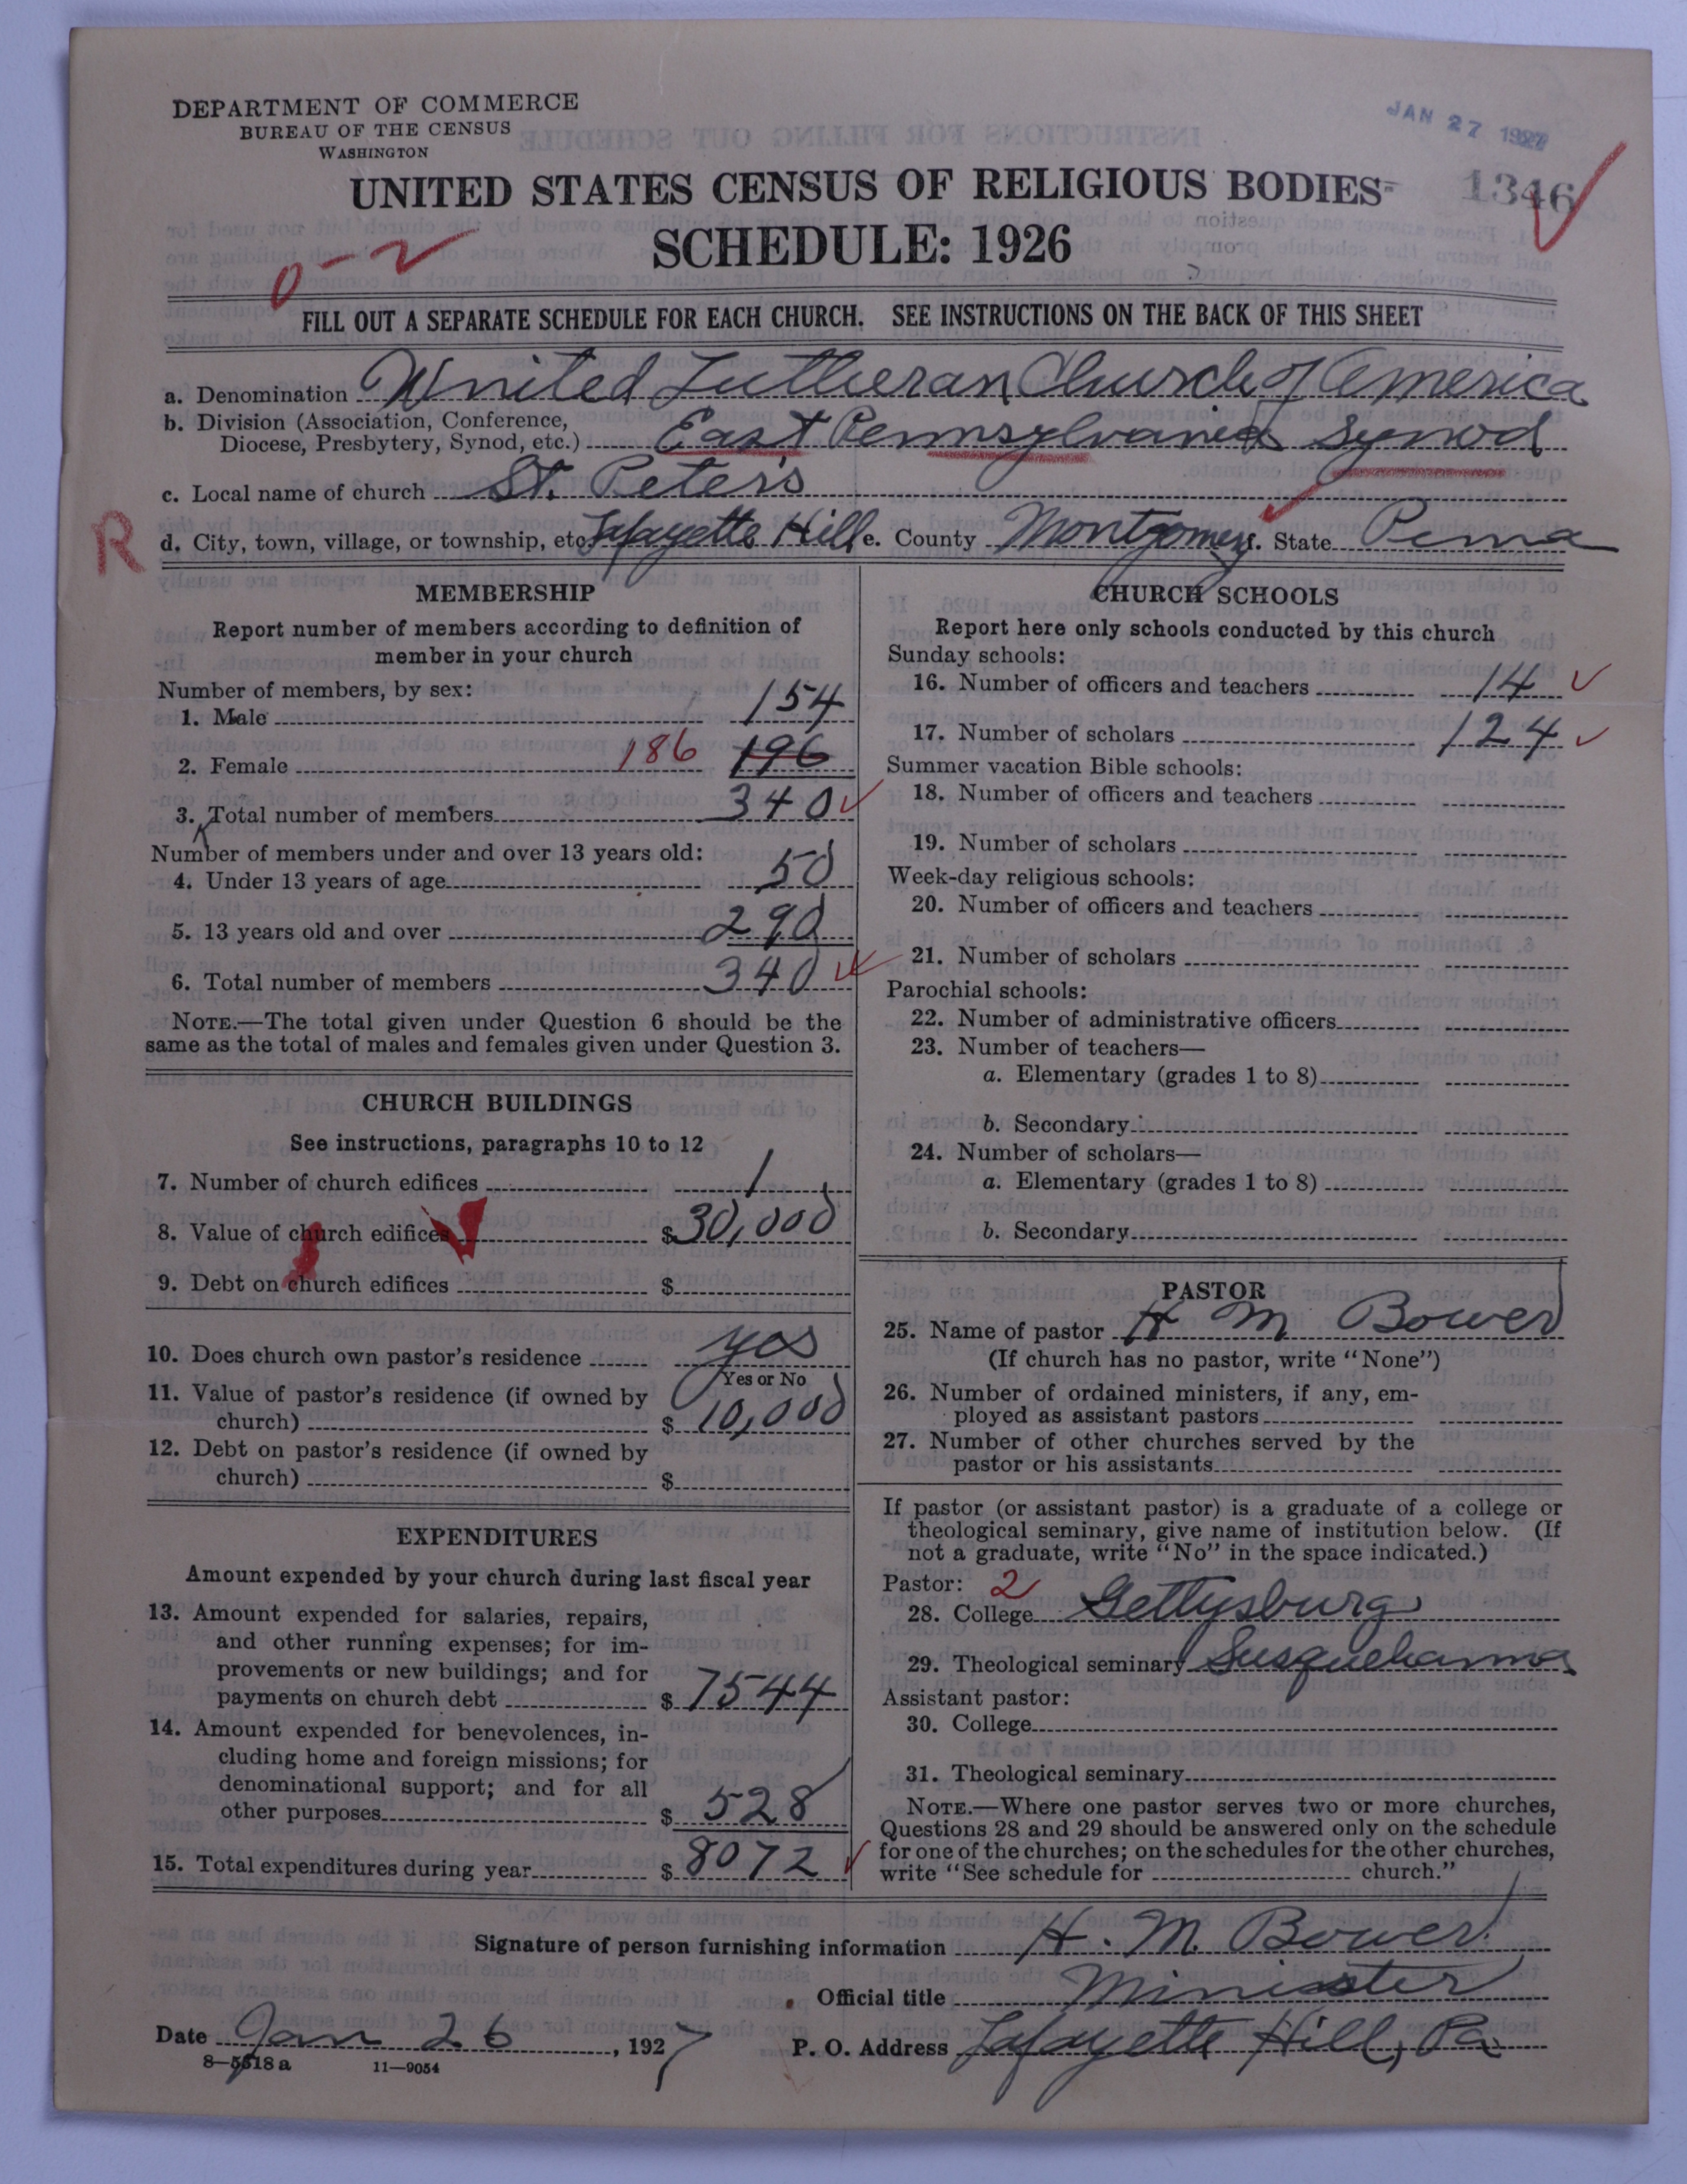 DEPARTMENT OF COMMERCE
BUREAU OF THE CENSUS
WASHINGTON
JAN 27 1927
UNITED STATES CENSUS OF RELIGIOUS BODIES
1346
SCHEDULE: 1926
0-2
FILL OUT A SEPARATE SCHEDULE FOR EACH CHURCH. SEE INSTRUCTIONS ON THE BACK OF THIS SHEET
a. Denomination United Lutheran Church of America
b. Division (Association, Conference,
Diocese, Presbytery, Synod, etc.) East Pennsylvania Synod
c. Local name of church St. Peter's
R
d. City, town, village, or township, etc. Lafayette Hill e. County Montgomery f. State Penna
MEMBERSHIP
Report number of members according to definition of
member in your church
Number of members, by sex:
1. Male 154
2. Female 186 196
3. Total number of members 340
Number of members under and over 13 years old:
4. Under 13 years of age 50
5. 13 years old and over 290
6. Total number of members 340
NOTE.—The total given under Question 6 should be the
same as the total of males and females given under Question 3.
CHURCH BUILDINGS
See instructions, paragraphs 10 to 12
7. Number of church edifices 1
8. Value of church edifices $30,000
9. Debt on church edifices $
10. Does church own pastor's residence yes
Yes or No
11. Value of pastor's residence (if owned by
church) $ 10,000
12. Debt on pastor's residence (if owned by
church) $
EXPENDITURES
Amount expended by your church during last fiscal year
13. Amount expended for salaries, repairs,
and other running expenses; for im-
provements or new buildings; and for
payments on church debt $ 7544
14. Amount expended for benevolences, in-
cluding home and foreign missions; for
denominational support; and for all
other purposes $ 528
15. Total expenditures during year $ 8072
CHURCH SCHOOLS
Report here only schools conducted by this church
Sunday schools:
16. Number of officers and teachers 14
17. Number of scholars 124
Summer vacation Bible schools:
18. Number of officers and teachers
19. Number of scholars
Week-day religious schools:
20. Number of officers and teachers
21. Number of scholars
Parochial schools:
22. Number of administrative officers
23. Number of teachers—
a. Elementary (grades 1 to 8)
b. Secondary
24. Number of scholars—
a. Elementary (grades 1 to 8)
b. Secondary
PASTOR
25. Name of pastor H M Bower
(If church has no pastor, write "None")
26. Number of ordained ministers, if any, em-
ployed as assistant pastors
27. Number of other churches served by the
pastor or his assistants
If pastor (or assistant pastor) is a graduate of a college or
theological seminary, give name of institution below. (If
not a graduate, write "No" in the space indicated.)
Pastor: 2
28. College Gettysburg
29. Theological seminary Susquehanna
Assistant pastor:
30. College
31. Theological seminary
NOTE.—Where one pastor serves two or more churches,
Questions 28 and 29 should be answered only on the schedule
for one of the churches; on the schedules for the other churches,
write "See schedule for church."
Signature of person furnishing information H. M. Bower
Official title Minister
Date Jan 26, 1927 P. O. Address Lafayette Hill, Pa
8—5518a 11—9054